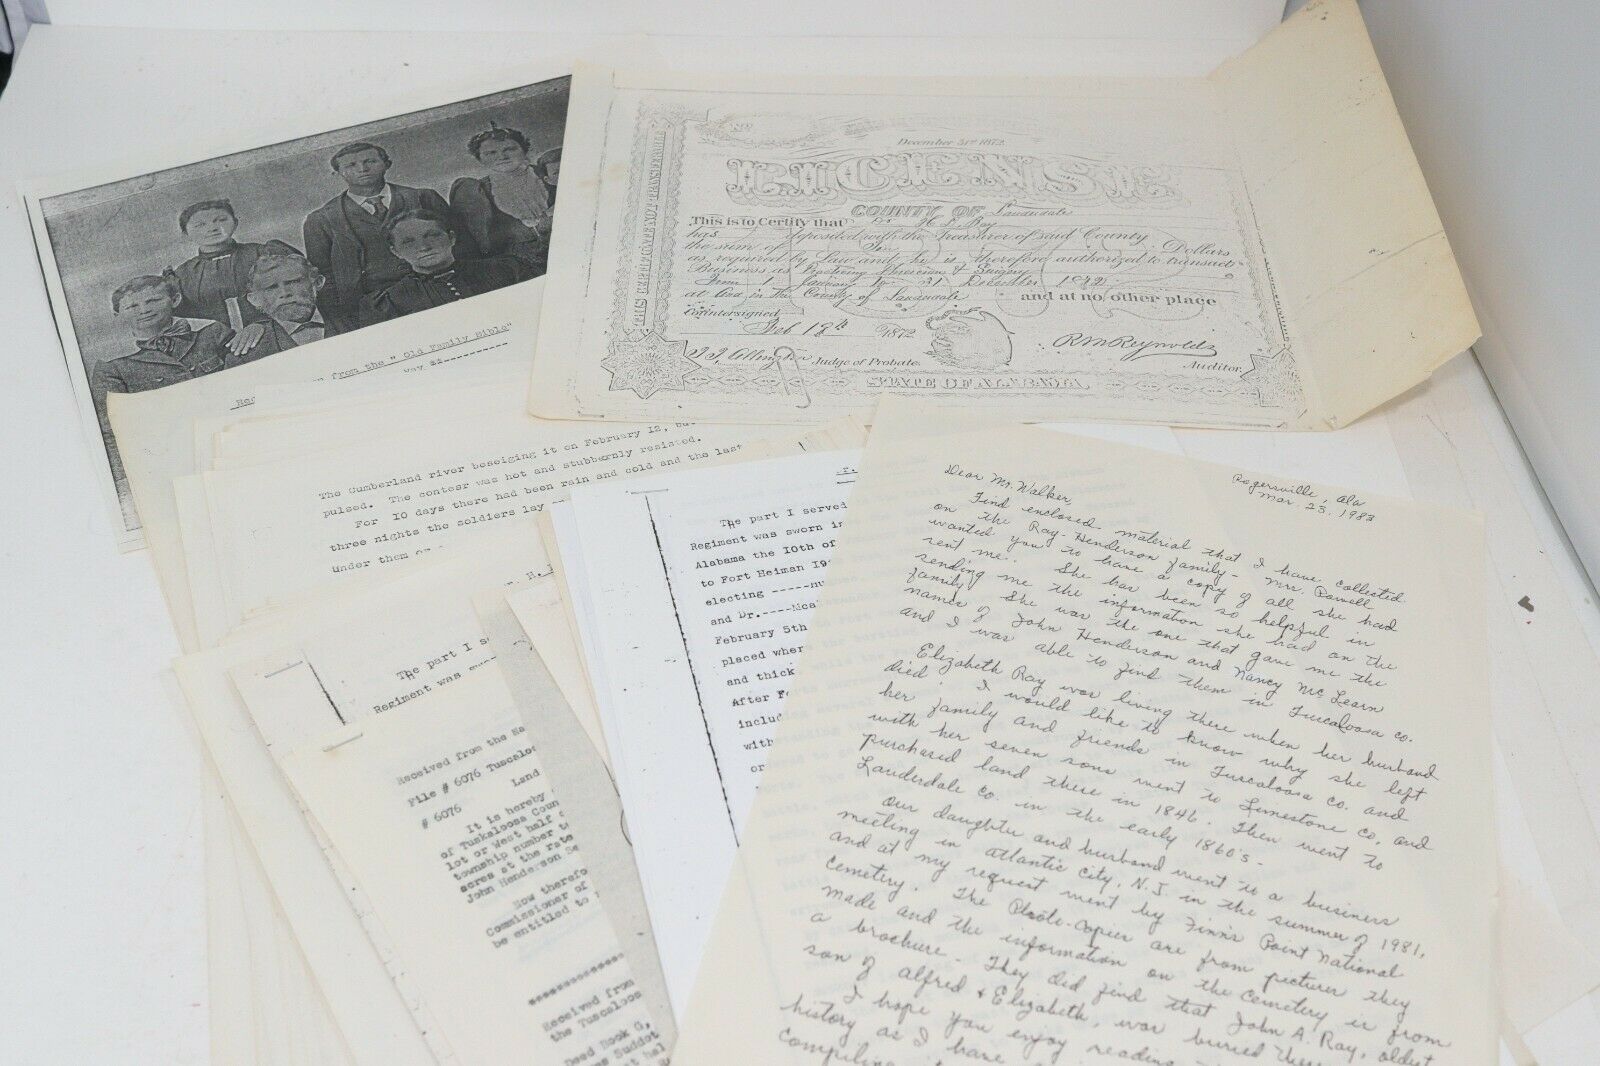 en from the " Old Family Bible"
The Cumberland river beseiging it on February 12,
pulsed. The contest was hot and stubbornly resisted.
For 10 days there had been rain and cold and the last
three nights the soldiers lay
Under them
December 31st 1872
LICENSE
COUNTY OF Lauderdale
This is to Certify that Dr H. L. Ray
has deposited with the Treasurer of said County
the sum of Ten Dollars
as required by Law and he is therefore authorized to transact
Business as Practicing Physician & Surgeon
From 1 January to 31 December 1872
at Ana in The County of Lauderdale and at no other place
Countersigned
Feb 12th 1872
R M Reynolds
Judge of Probate
Auditor.
STATE OF ALABAMA
THIS LICENSE NOT TRANSFERABLE
The part I served
Regiment was sworn in
Alabama the 10th of
to Fort Heiman
electing -----
and Dr.----
February 5th
placed wher
and thick
After
includ
with
or
The part I s
Regiment was
Received from the
File # 6076 Tuscaloo
# 6076 Land
It is hereby
of Tuskaloosa Coun
lot or West half
township number
acres at the rate
John Henderson
Now therefo
Commissioner of
be entitled to
************
Received from
the Tuscaloos
Deed Book G,
Suddot
Rogersville, Ala
Mar. 23, 1983
Dear Mr. Walker,
Find enclosed material that I have collected
on the Ray-Henderson family - Mrs. Powell
wanted you to have a copy of all she had
sent me. She has been so helpful in
sending me the information she had on the
family. She was the one that gave me the
names of John Henderson and Nancy McLearn
and I was able to find them in Tuscaloosa co.
Elizabeth Ray was living there when her husband
died. I would like to know why she left
her family and friends in Tuscaloosa co. and
with her seven sons went to Limestone co, and
purchased land there in 1846. Then went to
Lauderdale co. in the early 1860's.
Our daughter and husband went to a business
meeting in Atlantic City, N.J. in the summer of 1981,
and at my request went by Finn's Point National
Cemetery. The Photo-Copies are from pictures they
made and the information on the cemetery is from
a brochure. They did find that John A. Ray, oldest
son of Alfred & Elizabeth, was buried there
I hope you enjoy reading
history as I have
compiling